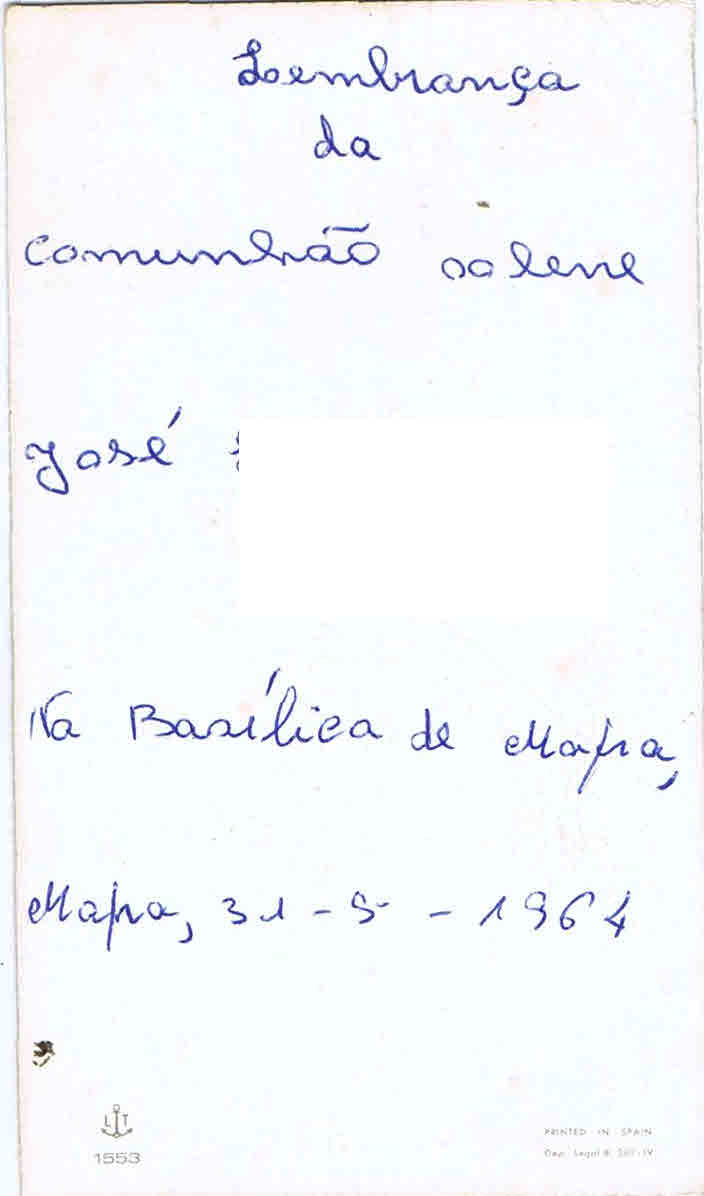 Lembrança
da
Comunhão solene
José
Na Basílica de Mafra,
Mafra, 31-5-1964
L T
1553
PRINTED IN SPAIN
Dep. Legal B.